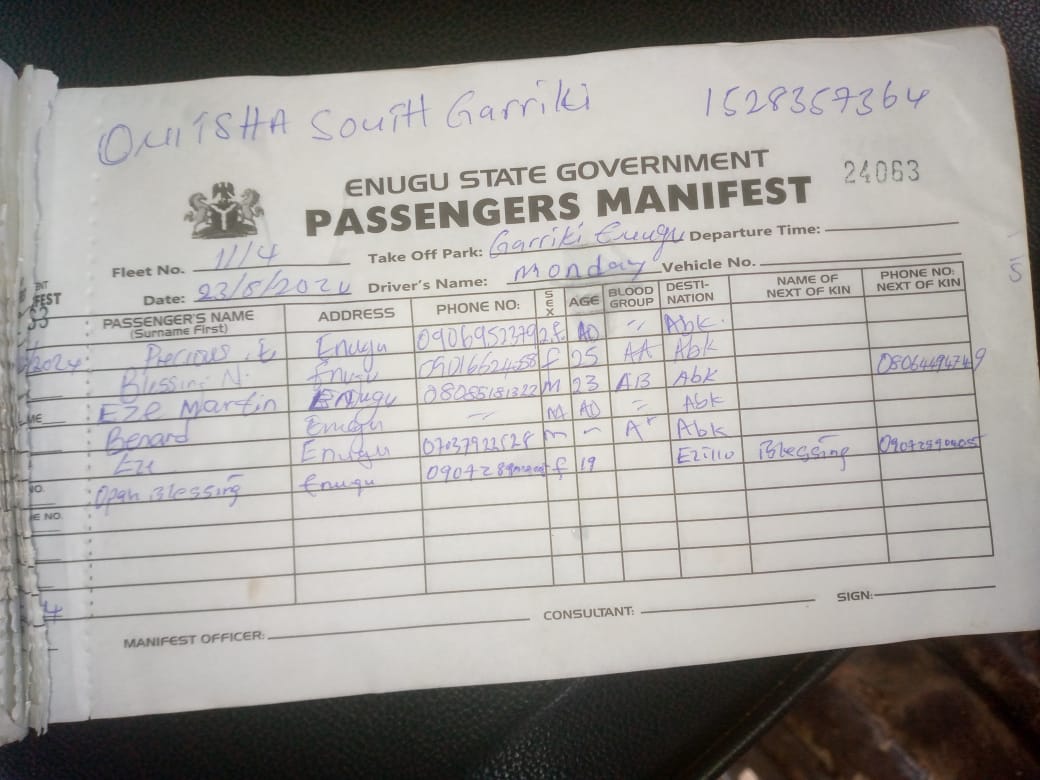 ONITSHA South Garriki 1528357364
ENUGU STATE GOVERNMENT
PASSENGERS MANIFEST 24063
Fleet No. 11/4 Take Off Park: Garriki Enugu Departure Time:
Date: 23/5/2024 Driver's Name: Monday Vehicle No.
PASSENGER'S NAME (Surname First) ADDRESS PHONE NO: SEX AGE BLOOD GROUP DESTI-NATION NAME OF NEXT OF KIN PHONE NO: NEXT OF KIN
Precious .E Enugu f AD " Abk.
Blessing N. Enugu f 25 AA Abk
Eze Martin Enugu 08085181322 m 23 AB Abk 08064494749
Benard Enugu " M AD = Abk
Eze Enugu 07037922528 m - A+ Abk
Opan Blessing Enugu f 19 Ezillo Blessing
MANIFEST OFFICER: CONSULTANT: SIGN: